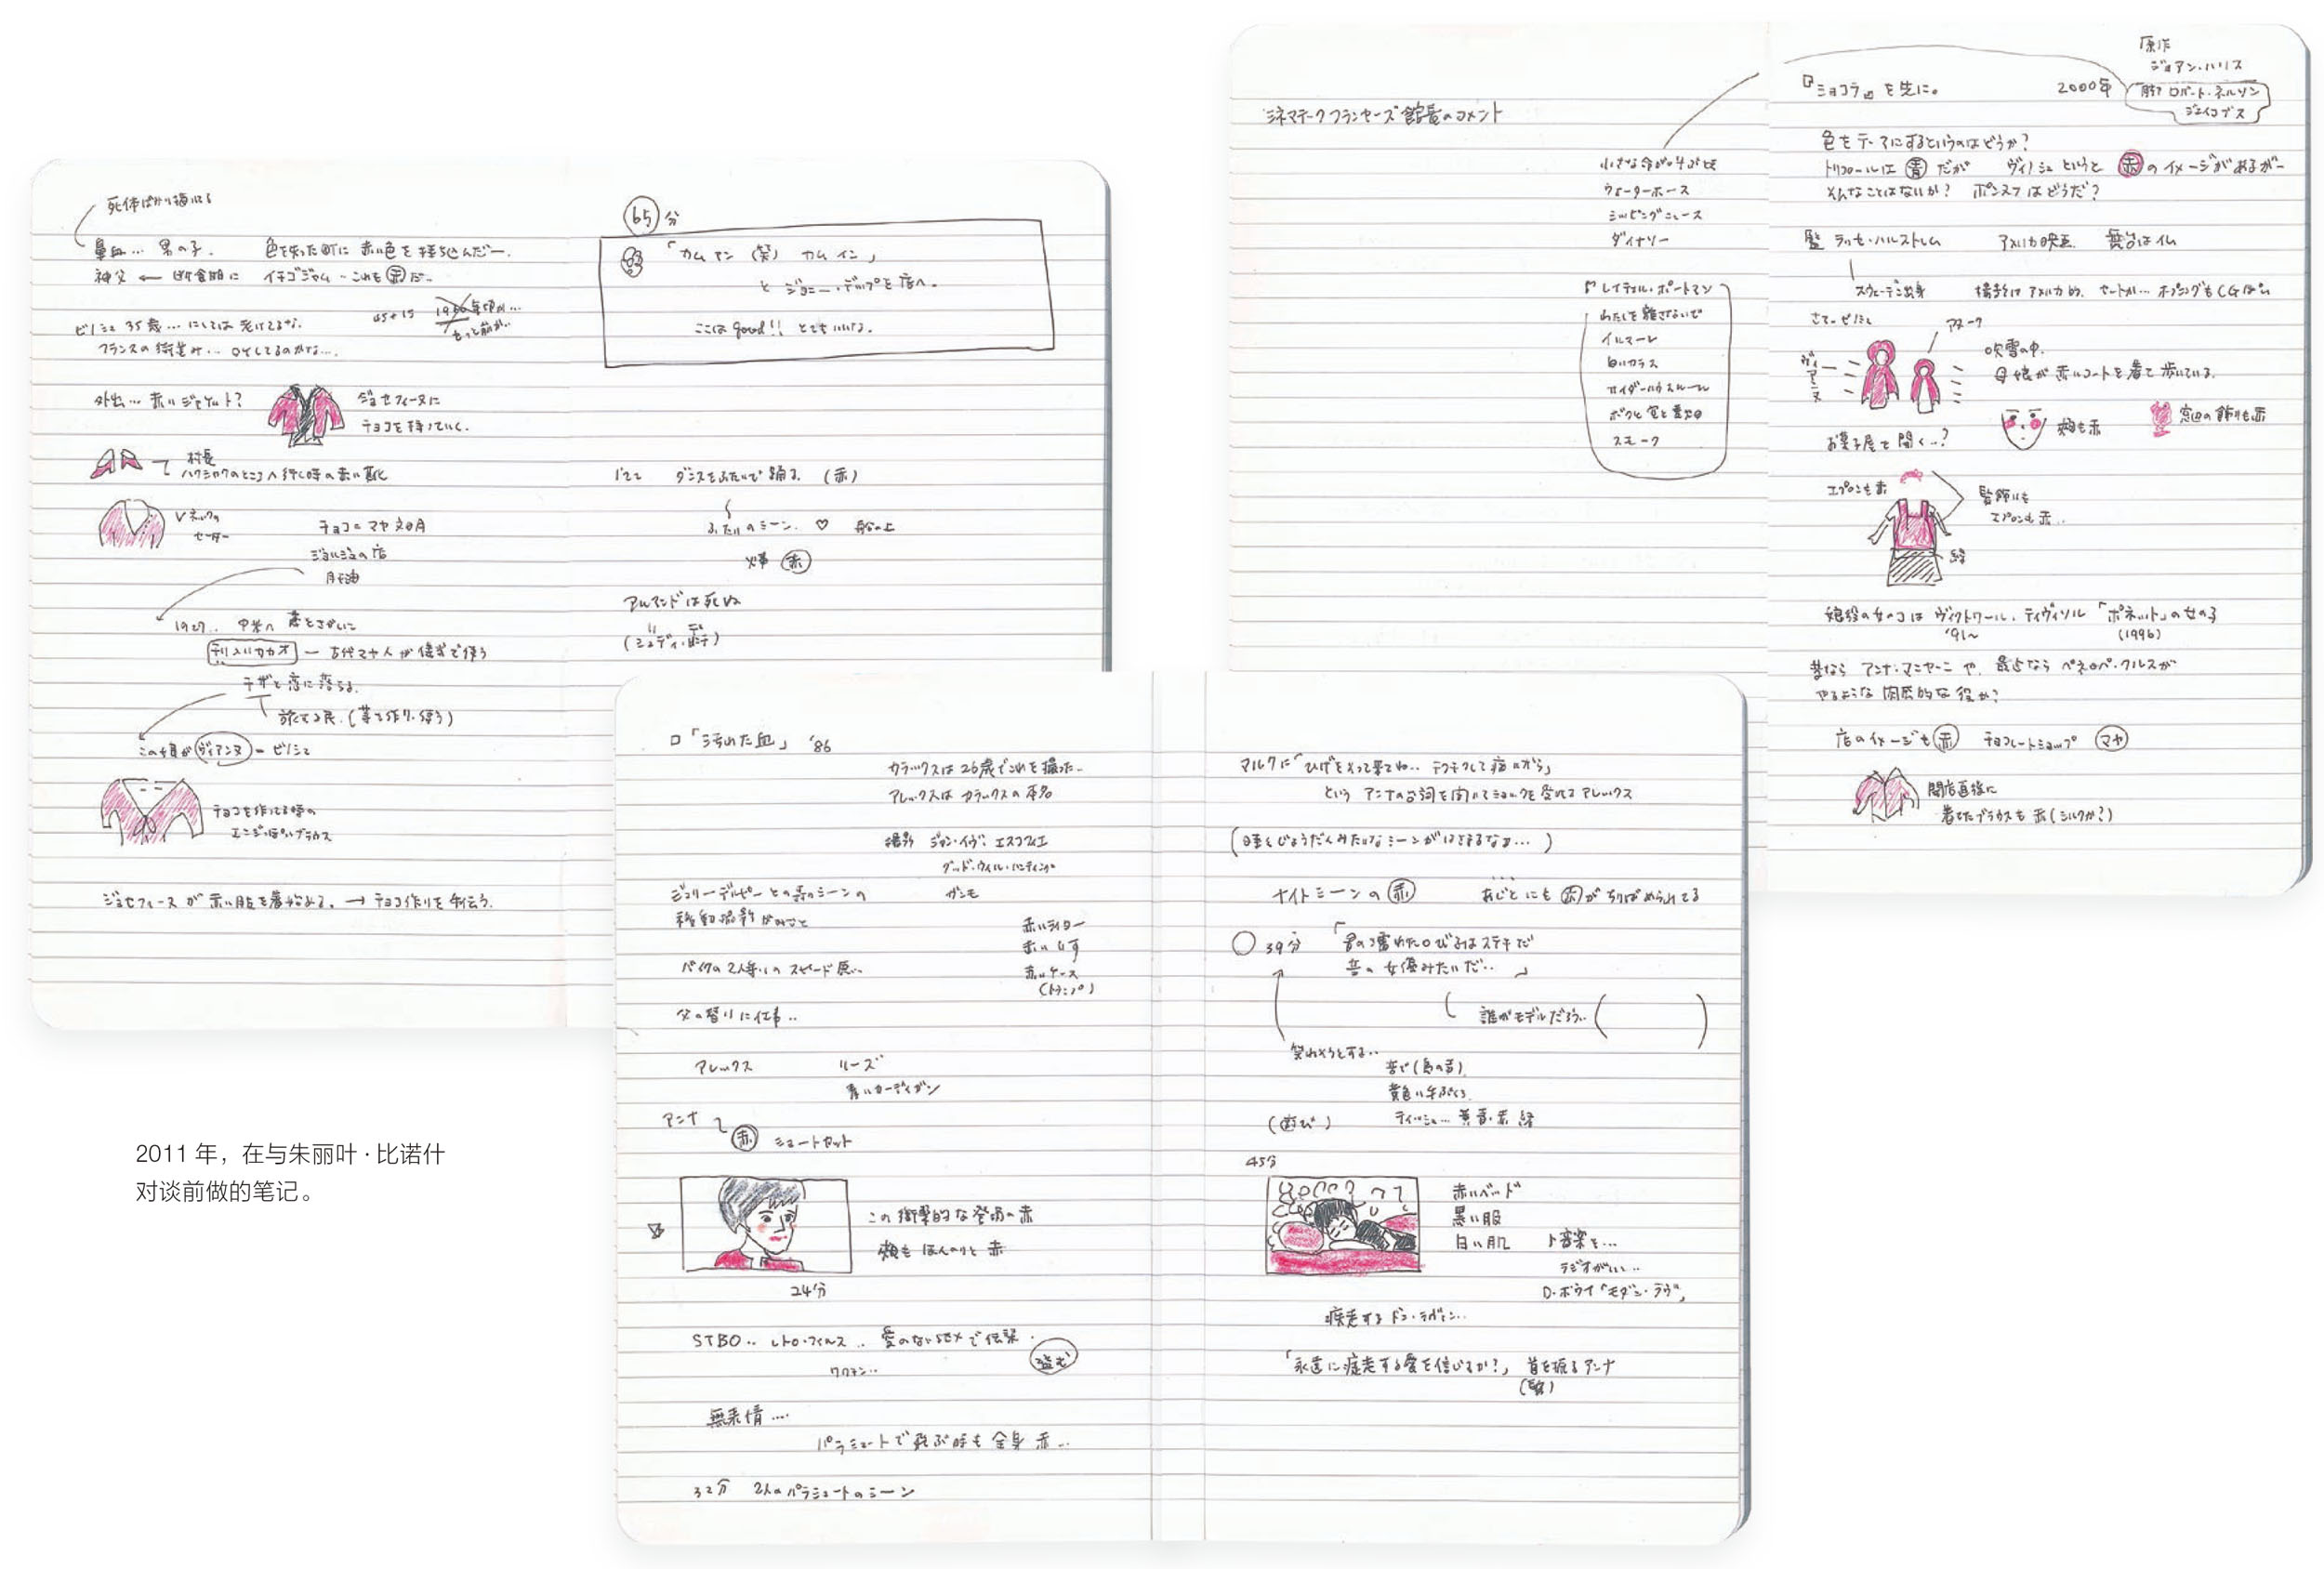 死体ばかり描いてる
鼻血… 男の子. 色を失った町に 赤い色を持ち込んだ—.
神父 ← 断食期に イチゴジャム…これも赤だ..
ビノシュ 35歳… にしては 老けてるな.
45+15
もっと前か..
フランスの街並み…ロケしてるのかな….
外出… 赤いジャケット?
ジョセフィーヌに
チョコを持っていく.
村長
ハクシャクのところへ行く時の赤い靴
Vネックの
セーター
チョコ=マヤ文明
ジョルジュの店
肝油
1927.. 中米へ 薬をさがしに
チリ入りカカオ — 古代マヤ人が儀式で使う
チザと恋に落ちる.
旅する民.(薬を作り・使う)
この娘がヴィアンヌ=ビノシュ
チョコを作ってる時の
エンジっぽいブラウス
ジョセフィーヌが 赤い服を着始める. → チョコ作りを手伝う.
65分
「カム アン(笑) カム イン」
と ジョニー・デップを店へ.
ここはgood!! とてもいいな.
1'22 ダンスをふたりで踊る. (赤)
ふたりのシーン. ♡ 船の上
火事 赤
アルマンドは死ぬ
(ジュディ・デンチ)
シネマテークフランセーズ館長のコメント
小さな命が呼ぶとき
ウォーターホース
シッピングニュース
ダイナソー
レイチェル・ポートマン
わたしを離さないで
イルマーレ
白いカラス
サイダーハウスルール
ボクと空と麦畑
スモーク
原作
ジョアン・ハリス
『ショコラ』を先に。 2000年
脚本 ロバート・ネルソン
ジェイコブス
色をテーマにするというのはどうか?
トリコロールは 青 だが ヴィノシュというと 赤 のイメージがあるが—
そんなことはないか? ポンヌフはどうだ?
監 ラッセ・ハルストレム アメリカ映画. 舞台は仏
スウェーデン出身 撮影はアメリカ的. セットか… オープニングもCGぽい
アヌーク
ヴィアンヌ
吹雪の中.
母娘が赤いコートを着て歩いている.
頬も赤
窓辺の飾りも赤
お菓子屋を開く..?
エプロンも赤
髪飾りも
エプロンも赤..
緑
娘役の女のコは ヴィクトワール・ティヴィソル 「ポネット」の女の子
'91~ (1996)
昔なら アンナ・マニャーニや、最近なら ペネロペ・クルスが
やるような 肉感的な役か?
店のイメージも 赤 チョコレートショップ マヤ
開店直後に
着てたブラウスも赤(シルクか?)
□「汚れた血」 '86
カラックスは26歳でこれを撮った..
アレックスは カラックスの本名
撮影 ジャン・イヴ・エスコフィエ
グッド・ウィル・ハンティング
ガンモ
ジュリーデルピーとの森のシーンの
移動撮影がみごと
赤いライター
赤いいす
赤いケース
(トランプ)
バイクの2人乗りの スピード感..
父の替りに仕事..
アレックス リーズ
青いカーディガン
アンナ
赤 ショートカット
この衝撃的な登場の赤
頬もほんのりと赤
24分
STBO.. レトロ・ウィルス.. 愛のないSEXで伝染.
盗む
ワクチン..
無表情….
パラシュートで飛ぶ時も全身 赤…
32分 2人のパラシュートのシーン
マルクに「ひげをそって来てね.. チクチクして痛いから」
という アンナの台詞を聞いてショックを受けてる アレックス
(時々じょうだんみたいなシーンがはさまるなぁ…)
ナイトシーンの 赤 あじとにも 赤がちりばめられてる
39分 「君の濡れた口びるはステキだ
昔の女優みたいだ..」
誰がモデルだろう..( )
笑わそうとする..
声で(鳥の声)
黄色い手ぶくろ.
(遊び) ティッシュ… 黄 青・赤 緑
45分
赤いベッド
黒い服
白い肌
ト音楽を…
ラジオがいい..
D・ボウイ「モダン・ラヴ」
疾走するドニ・ラヴァン..
「永遠に疾走する愛を信じるか?」 首を振るアンナ
2011 年，在与朱丽叶 · 比诺什
对谈前做的笔记。